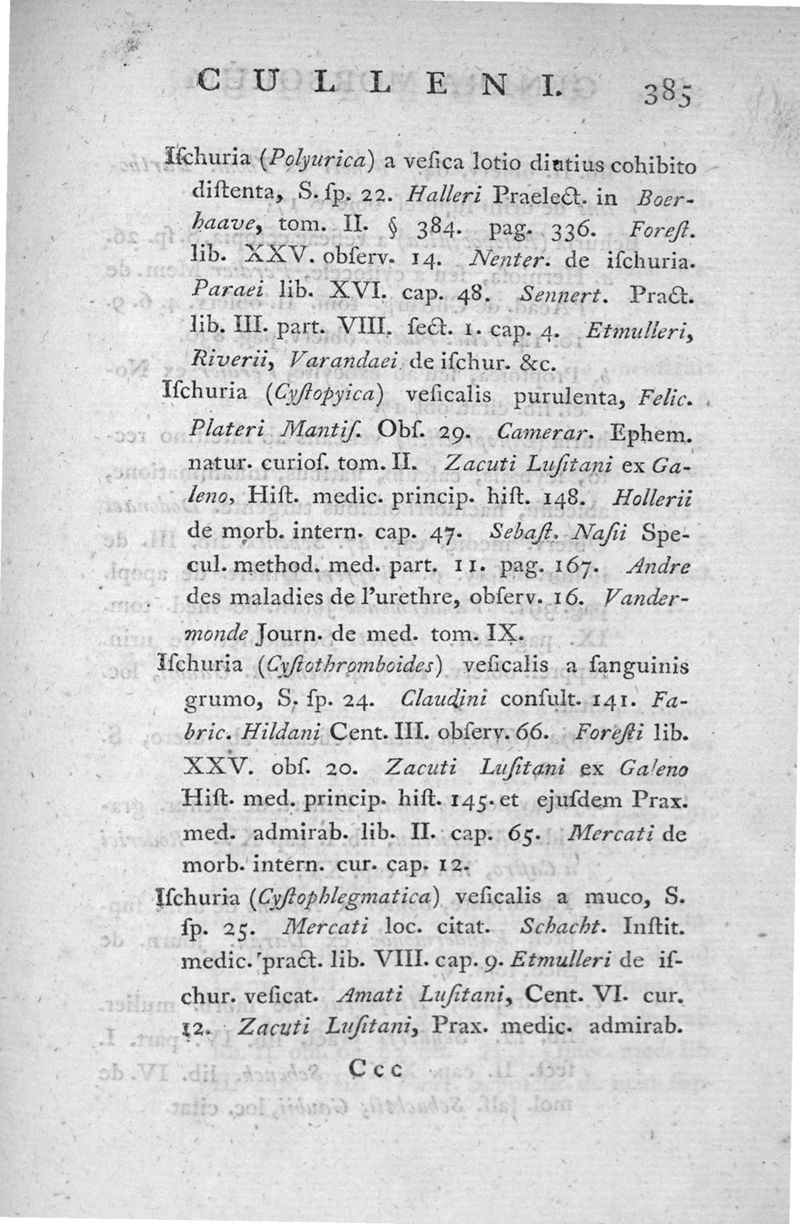 CULLENI. 385
Iſchuria (Polyurica) a veſica lotio diutius cohibito
diſtenta, S. ſp. 22. Halleri Praelect. in Boer-
haave, tom. II. § 384. pag. 336. Foreſt.
lib. XXV. obſerv. 14. Nenter. de iſchuria.
Paraei lib. XVI. cap. 48. Sennert. Pract.
lib. III. part. VIII. ſect. 1. cap. 4. Etmulleri,
Riverii, Varandaei de iſchur. &c.
Iſchuria (Cyſtopyica) veſicalis purulenta, Felic.
Plateri Mantiſ. Obſ. 29. Camerar. Ephem.
natur. curioſ. tom. II. Zacuti Luſitani ex Ga-
leno, Hiſt. medic. princip. hiſt. 148. Hollerii
de morb. intern. cap. 47. Sebaſt. Naſii Spe-
cul. method. med. part. 11. pag. 167. Andre
des maladies de l'urethre, obſerv. 16. Vander-
monde Journ. de med. tom. IX.
Iſchuria (Cyſtothromboides) veſicalis a ſanguinis
grumo, S. ſp. 24. Claudini conſult. 141. Fa-
bric. Hildani Cent. III. obſerv. 66. Foreſti lib.
XXV. obſ. 20. Zacuti Luſitani ex Galeno
Hiſt. med. princip. hiſt. 145. et ejuſdem Prax.
med. admirab. lib. II. cap. 65. Mercati de
morb. intern. cur. cap. 12.
Iſchuria (Cyſtophlegmatica) veſicalis a muco, S.
ſp. 25. Mercati loc. citat. Schacht. Inſtit.
medic. pract. lib. VIII. cap. 9. Etmulleri de iſ-
chur. veſicat. Amati Luſitani, Cent. VI. cur.
12. Zacuti Luſitani, Prax. medic. admirab.
Ccc